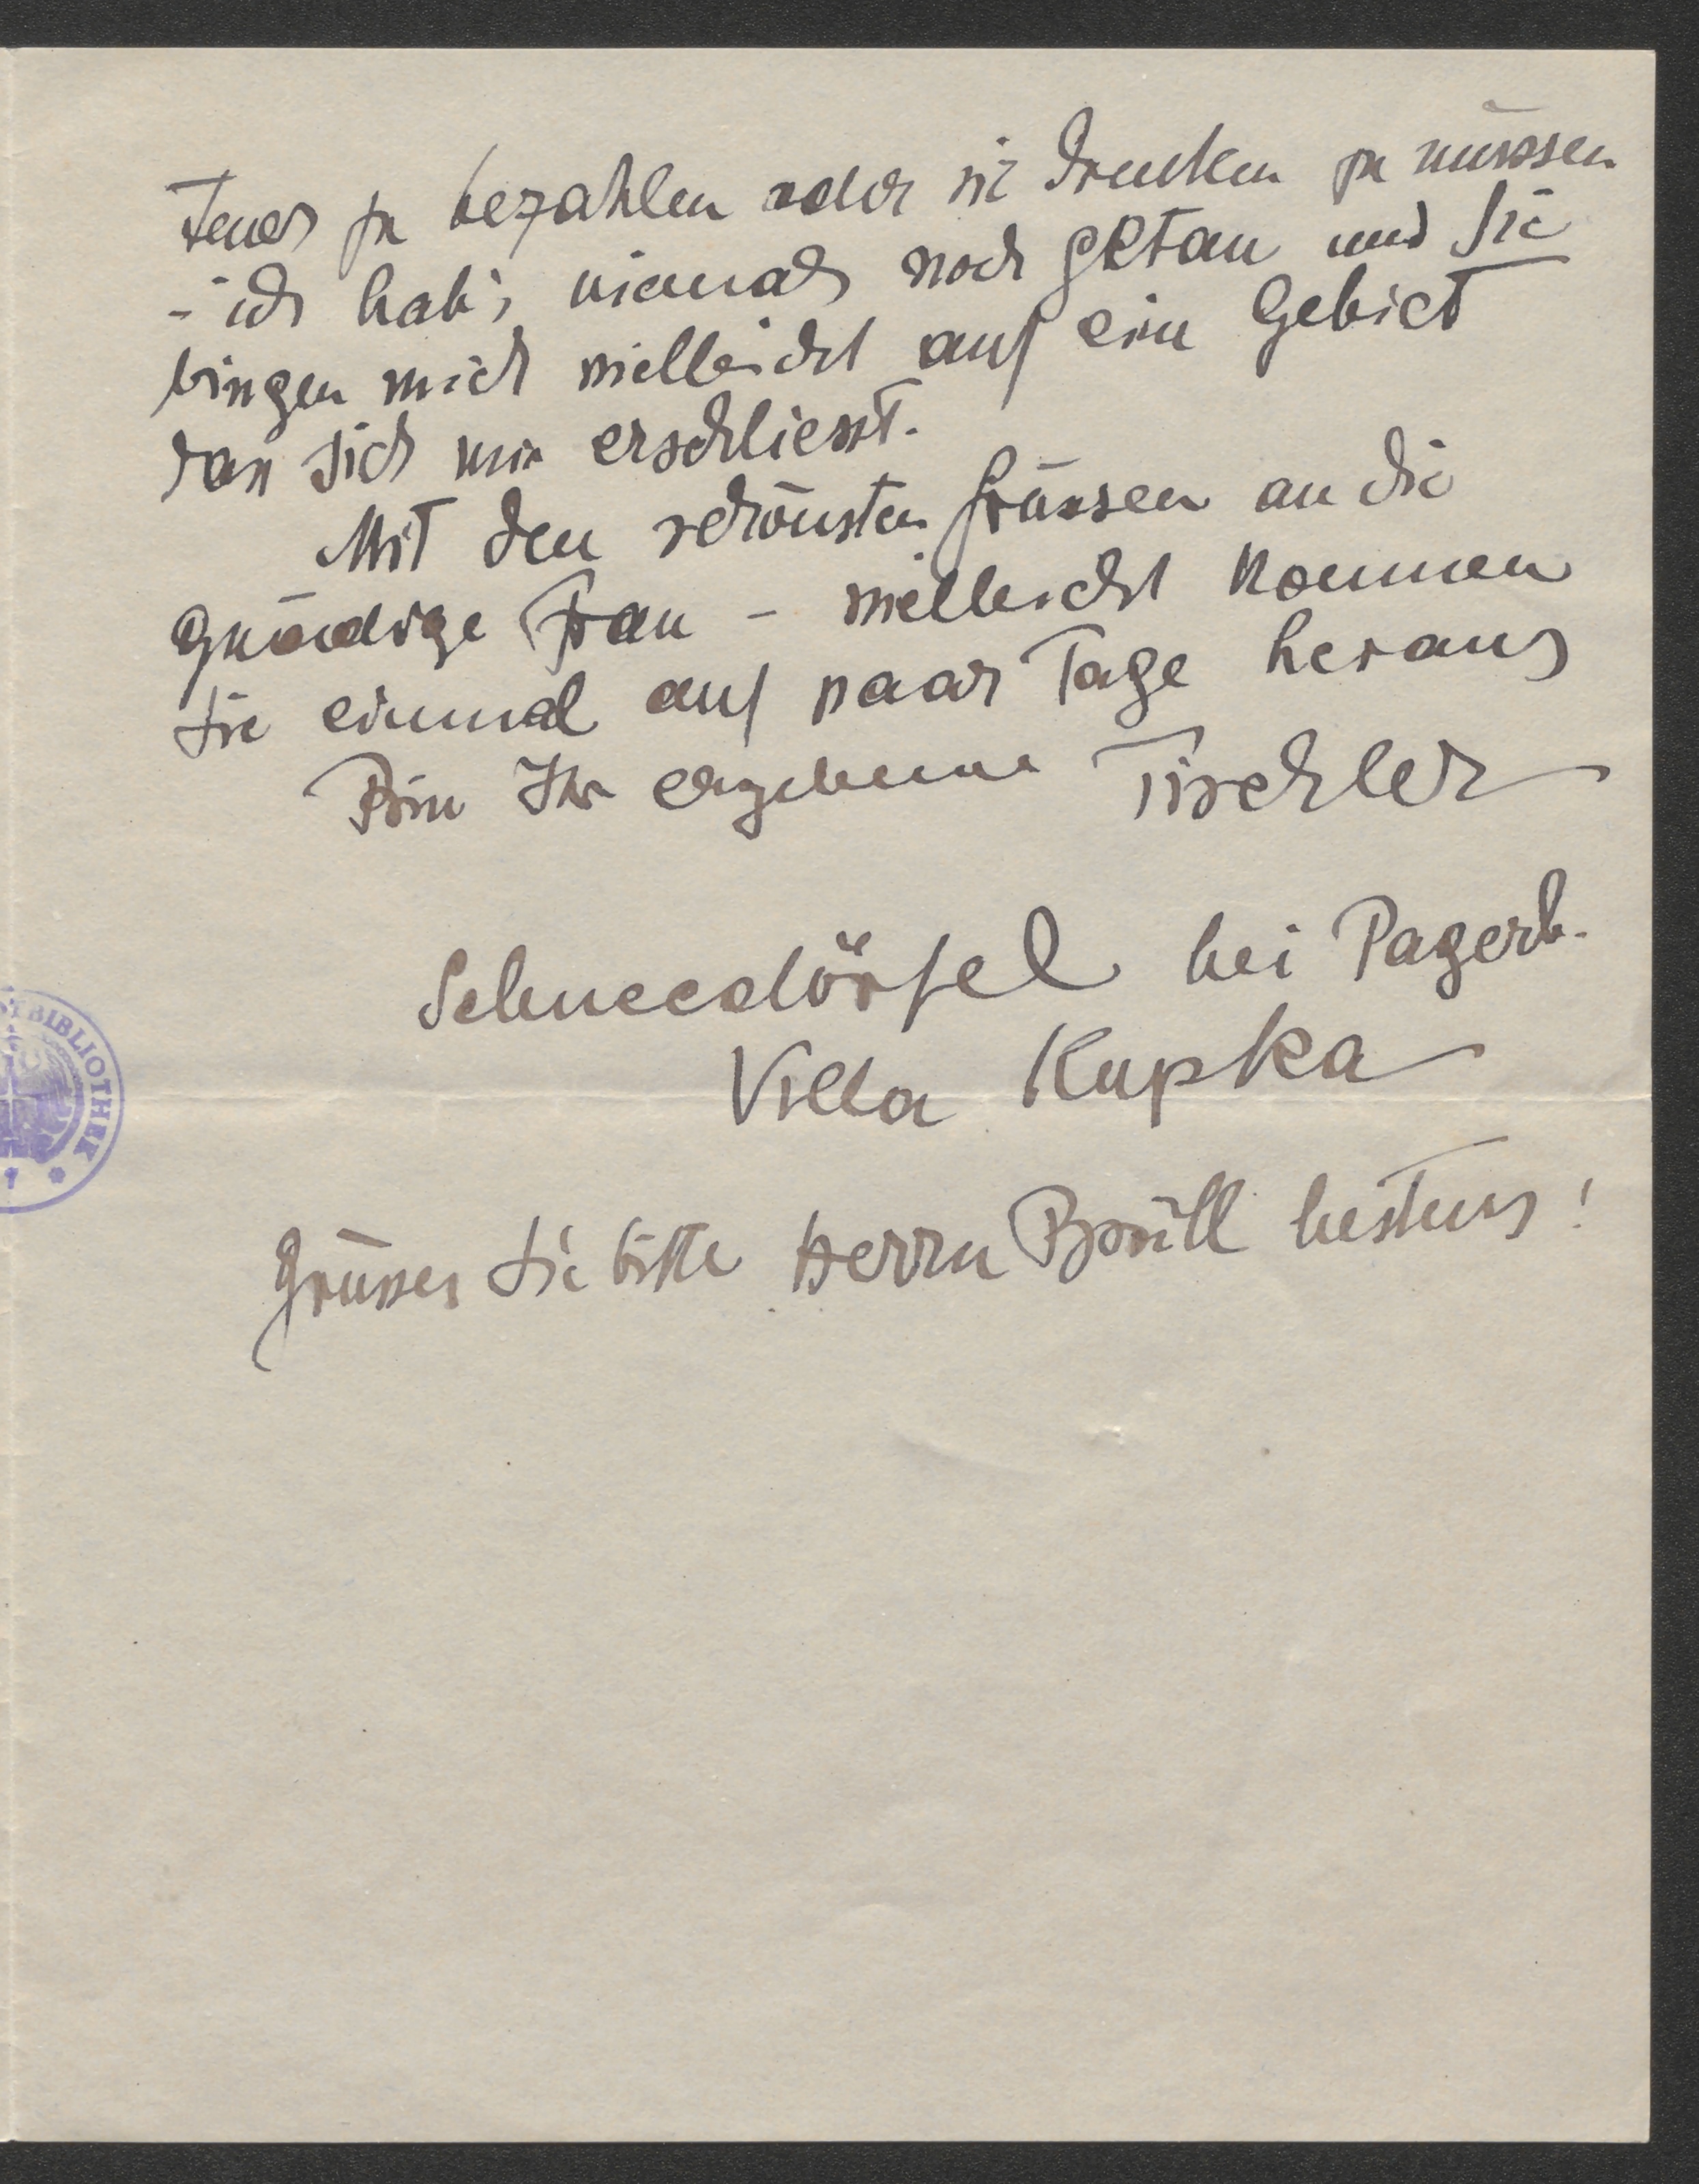 teuer zu bezahlen oder sie drucken zu müssen
- ich hab's niemals noch getan und Sie
bringen mich vielleicht auf ein Gebiet
das sich mir erschliesst.
Mit den schönsten Grüssen an die
gnädige Frau - vielleicht kommen
Sie einmal auf paar Tage heraus
Bin Ihr ergebener Tischler
Schneedörfel bei Pagerb.
Villa Kupka
BIBLIOTHEK
Grüssen Sie bitte Herrn Brüll bestens!